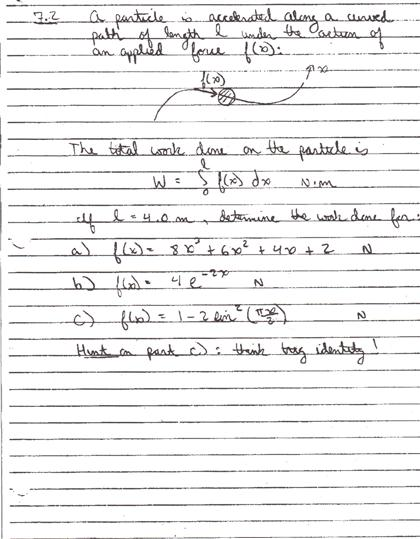 7.2 A particle is accelerated along a curved
path of length l under the action of
an applied force f(x):
f(x)
x
The total work done on the particle is
W = ∫₀ˡ f(x) dx N·m
If l = 4.0 m, determine the work done for:
a) f(x) = 8x³ + 6x² + 4x + 2 N
b) f(x) = 4 e^{-2x} N
c) f(x) = 1 - 2 sin² (πx/2) N
Hint on part c): think trig identity!